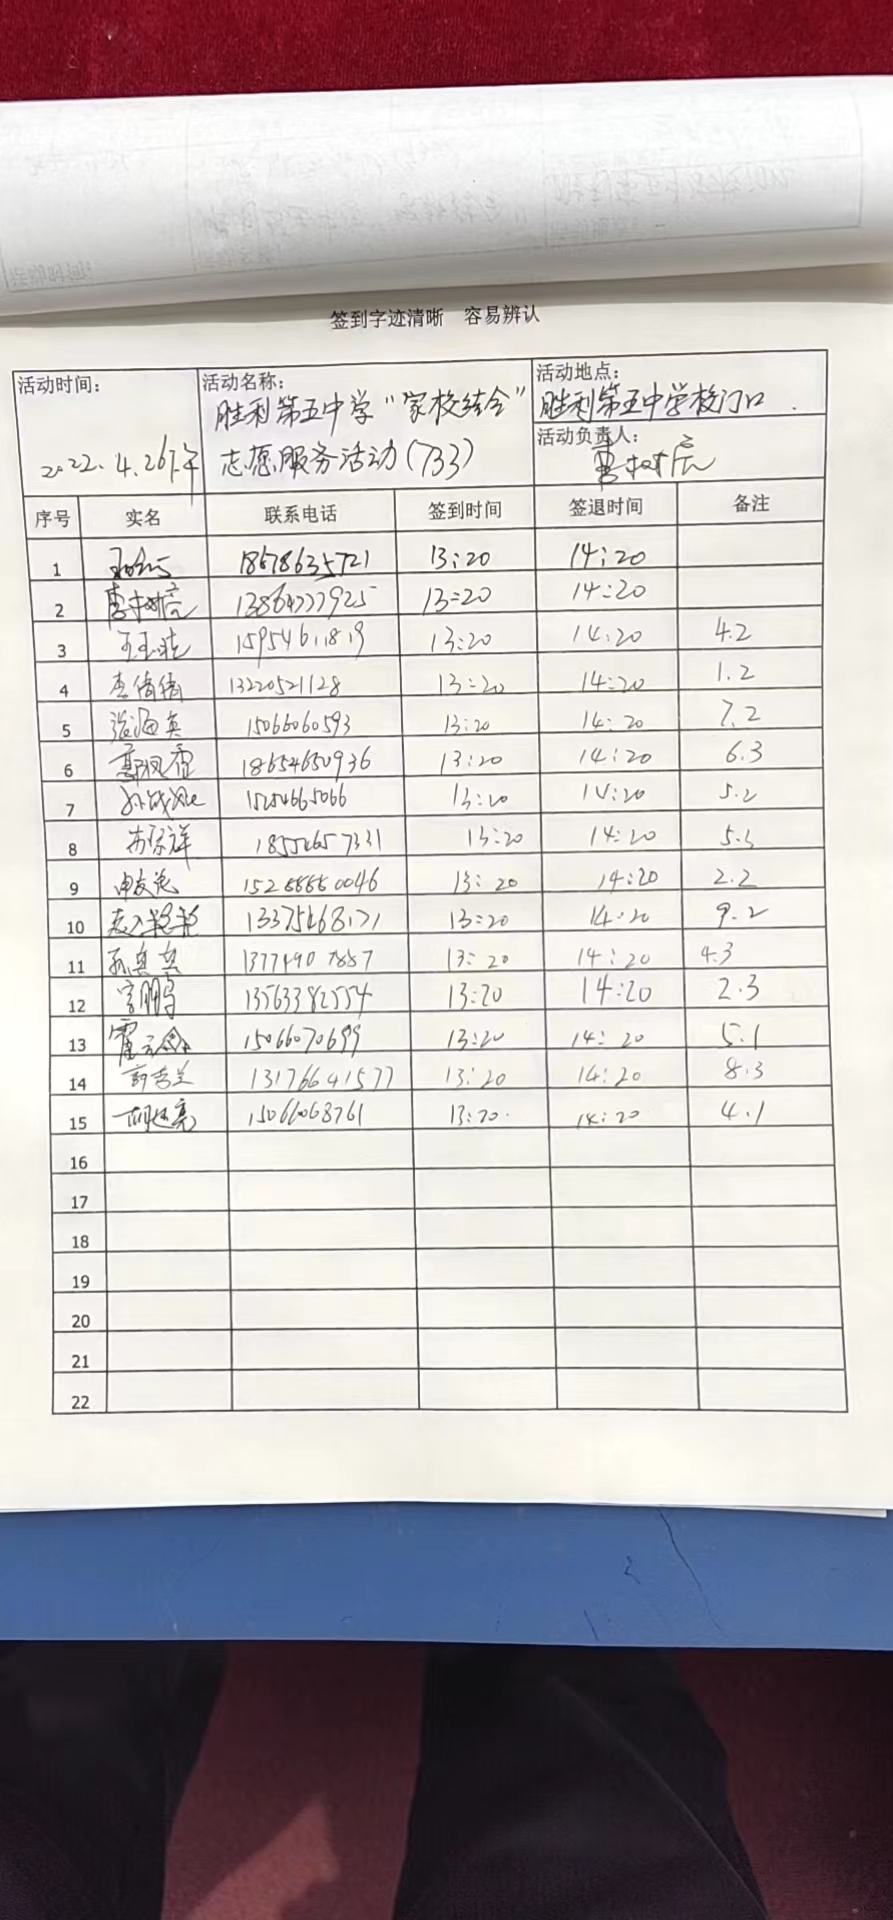 签到字迹清晰 容易辨认
活动时间：
2022.4.26下午
活动名称：
胜利第五中学“家校结合”
志愿服务活动(733)
活动地点：
胜利第五中学校门口.
活动负责人：
序号 实名 联系电话 签到时间 签退时间 备注
1 18678635721 13:20 14:20
2 13864777925 13:20 14:20
3 15954611819 13:20 14:20 4.2
4 李倩倩 13220521128 13:20 14:20 1.2
5 张海英 15066060593 13:20 14:20 7.2
6 18654650936 13:20 14:20 6.3
7 15254665066 13:20 14:20 5.2
8 18554657331 13:20 14:20 5.3
9 15288880046 13:20 14:20 2.2
10 13375468171 13:20 14:20 9.2
11 13:20 14:20 4.3
12 13563382554 13:20 14:20 2.3
13 15066070699 13:20 14:20 5.1
14 13176641577 13:20 14:20 8.3
15 15066068761 13:20. 14:20 4.1
16
17
18
19
20
21
22